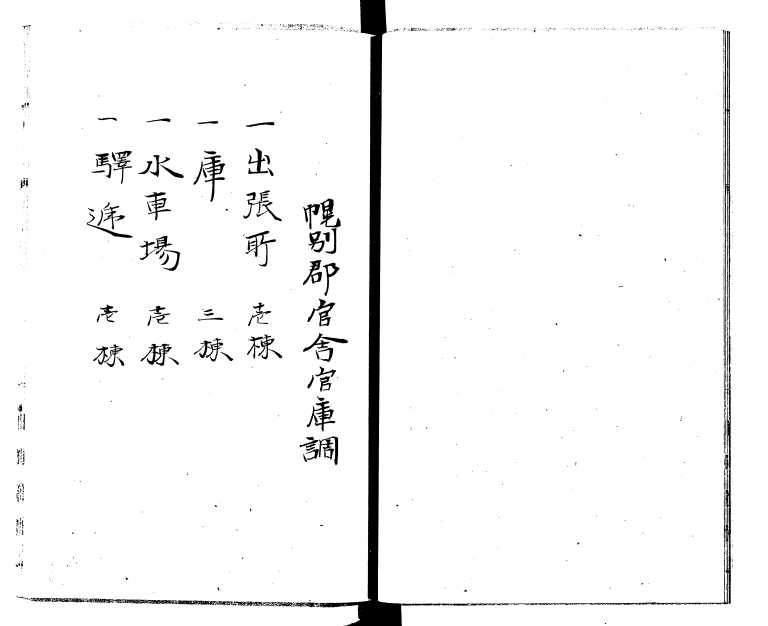 幌別郡官舎官庫調
一出張所 壱棟
一庫 三棟
一水車場 壱棟
一驛逓 壱棟